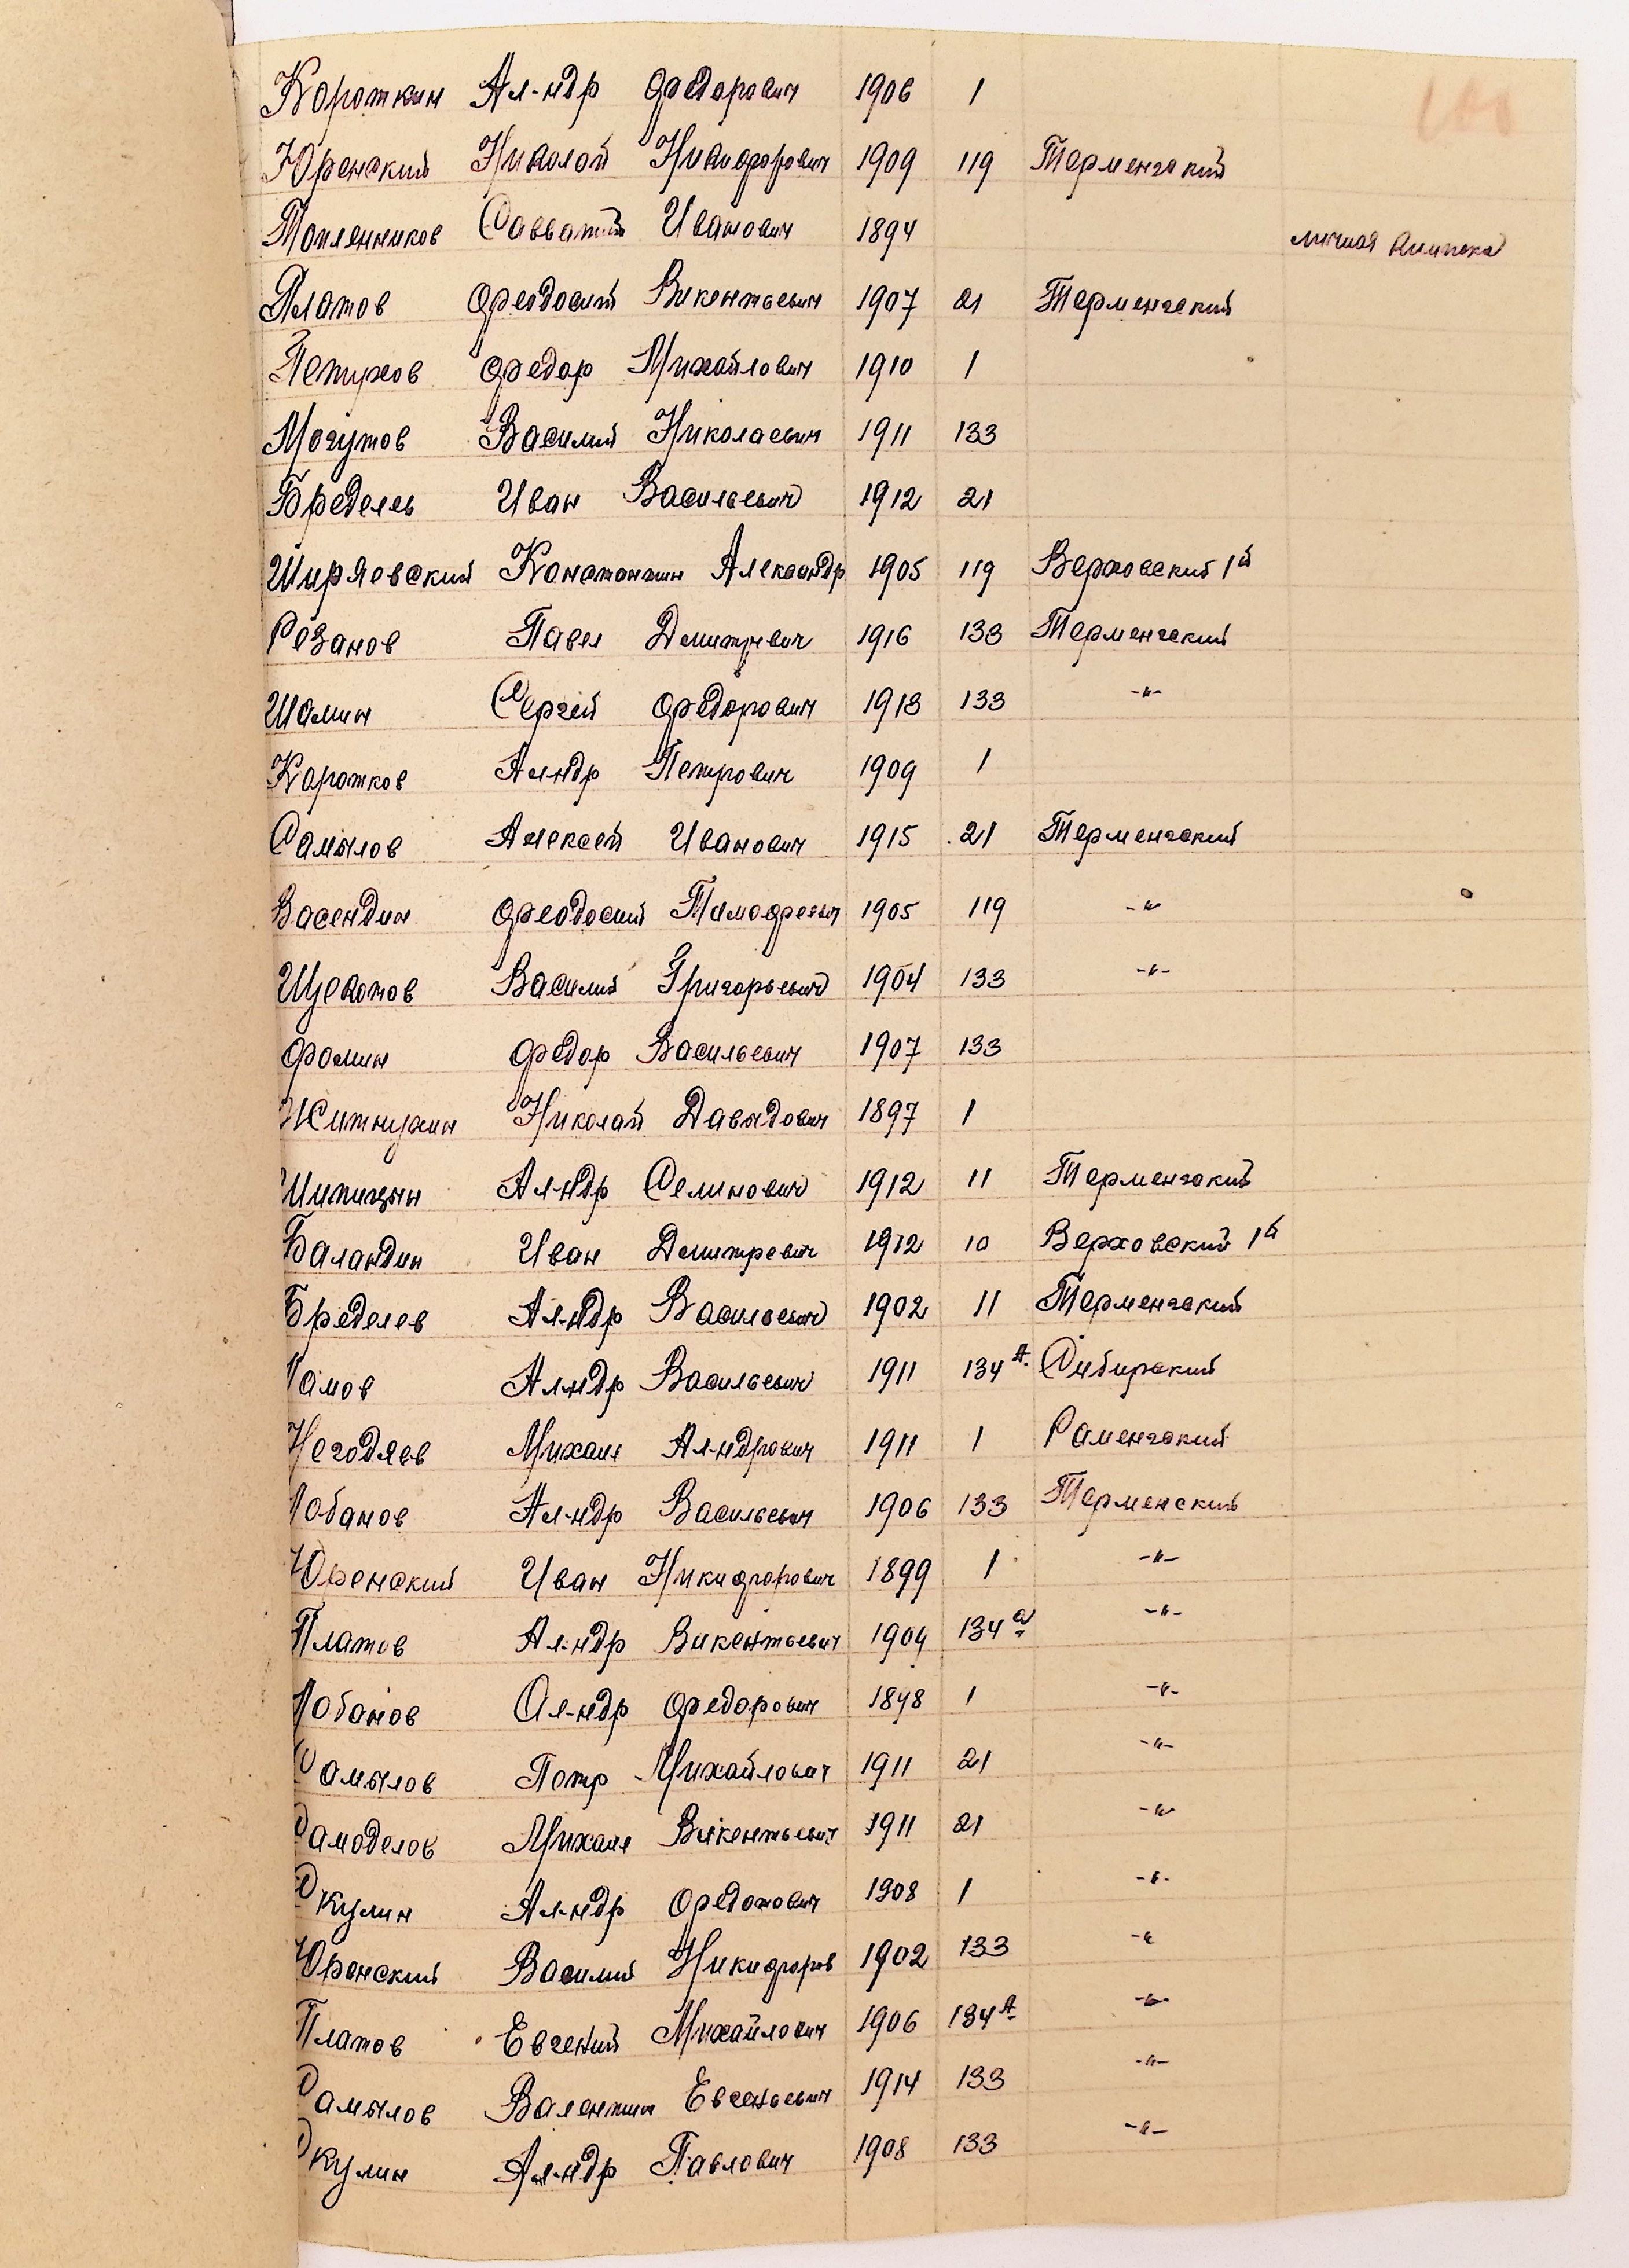 100
Короткин Ал-ндр Федорович 1906 1
Юренский Николай Никифорович 1909 119 Терменгский
Топленников Савватий Иванович 1894 личная
Платов Феодосий Викентьевич 1907 21 Терменгский
Петухов Федор Михайлович 1910 1
Могутов Василий Николаевич 1911 133
Бределев Иван Васильевич 1912 21
Ширяевский Константин Александр 1905 119 Верховский 1й
Резанов Павел Дмитревич 1916 133 Терменгский
Шамин Сергей Федорович 1913 133 -"-
Коротков Ал-ндр Петрович 1909 1
Самылов Алексей Иванович 1915 21 Терменгский
Васендин Феодосий Тимофеевич 1905 119 -"-
Щекотов Василий Григорьевич 1904 133 -"-
Фомин Федор Васильевич 1907 133
Житнухин Николай Давыдович 1897 1
Шипицын Ал-ндр Семинович 1912 11 Терменгский
Баландин Иван Дмитревич 1912 10 Верховский 1й
Бределев Ал-ндр Васильевич 1902 11 Терменгский
Ал-ндр Васильевич 1911 134А Сибирский
Негодяев Михаил Ал-ндрович 1911 1 Раменгский
Лобанов Ал-ндр Васильевич 1906 133 Терменский
Юренский Иван Никифорович 1899 1 -"-
Платов Ал-ндр Викентьевич 1904 134а -"-
Лобанов Ал-ндр Федорович 1898 1 -"-
Самылов Петр Михайлович 1911 21 -"-
Самоделов Михаил Викентьевич 1911 21 -"-
Окулин Ал-ндр Федотович 1908 1 -"-
Юренский Василий Никифоров 1902 133 -"-
Платов Евгений Михайлович 1906 134А -"-
Самылов Валентин Евгеньевич 1914 133 -"-
Окулин Ал-ндр Павлович 1908 133 -"-